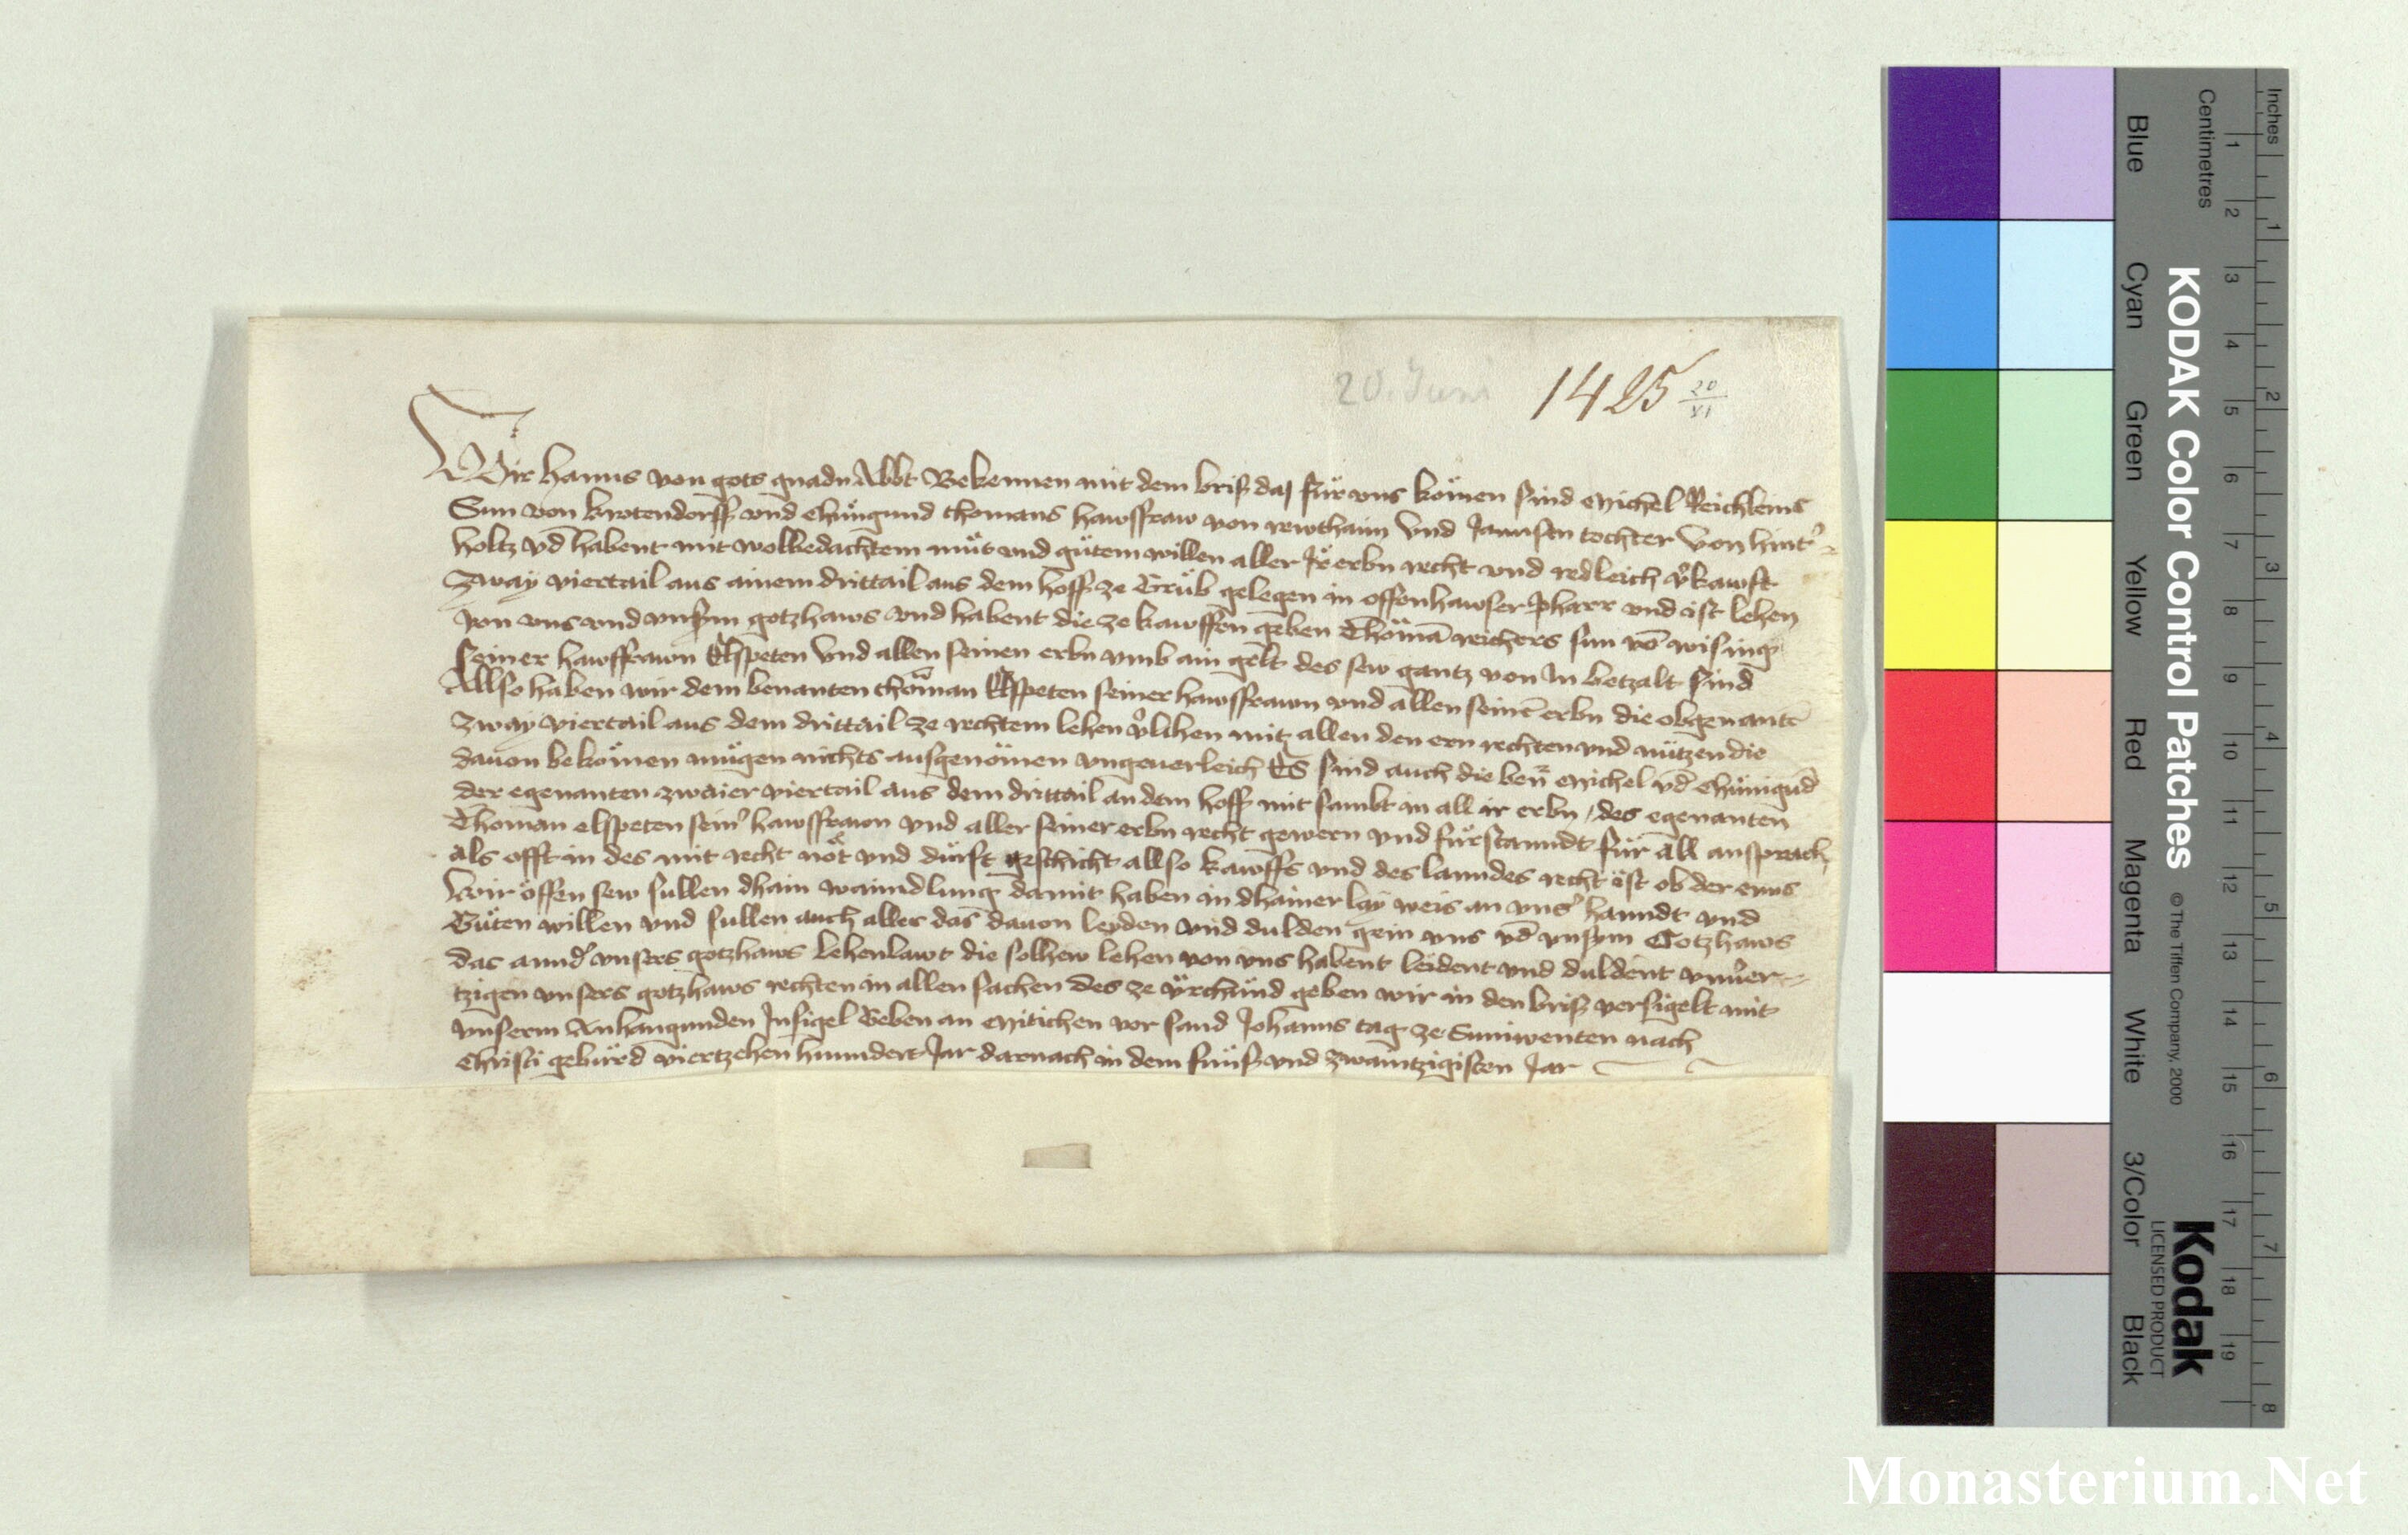 20. Juni 1425 20/VI
Wir Hanns von gots gnadn Abbt Bekennen mit dem brif daz für vns kömen sind Michel Reichleins
Sun von krotendorff vnd Chüngund thomans hawsfraw von rewthaim Vnd Jannsen tochter Von hint'
holtz vd habent mit wolbedachtem müt vnd gütem willen aller Ir erbn recht vnd redleich v'kawft
Zway viertail aus ainem drittail aus dem hoff ze Grüb gelegen in offenhawser pharr vnd ist lehen
von vns vnd vnserm gotzhaws vnd habent die ze kawffen geben Thöman reichers sun vō wising
seiner hawsfrawn Elspeten Vnd allen seinen erbn vmb ain gelt des sew gantz von In betzalt sind
Allso haben wir dem benanten thöman Elspeten seiner hawsfrawn vnd allen seinē erbn die obgenantē
zway viertail aus dem drittail ze rechtem lehen v'lihen mit allen den ern rechten vnd nützen die
dauon bekömen mügen nichts ausgenömen vngeuerleich Es sind auch die ben̄ Michel vd Chünigūd
der egenanten zwaier viertail aus dem drittail an dem hoff mit sambt in all ir erbn / des egenanten
Thoman elspeten sein' hawsfrawn vnd aller seiner erbn recht gewern vnd fürstanndt für all ansprach
als offt in des mit recht nöt vnd dürft geschicht allso kawffs vnd des lanndes recht ist ob der enns
Wir öffen sew sullen dhain wanndlung damit haben in dhainer lay weis an vns' hanndt vnd
Güten willen vnd sullen auch alles das dauon leyden vnd dulden gein vns vd vnserm Gotzhaws
das annd' vnsers gotzhaws Lehenlawt die solhew lehen von vns habent leident vnd duldent vnu'er-
tzigen vnsers gotzhaws rechten in allen sachen des ze vrchünd geben wir in den brif versigelt mit
vnserm Anhangunden Insigel Geben an Mitichen vor sand Johanns tag ze Suniwenten nach
Christi gebürd viertzehen hunndert Jar darnach in dem fünf vnd zwaintzigisten Jar
Inches
Centimetres
KODAK Color Control Patches © The Tiffen Company, 2000
Kodak
LICENSED PRODUCT
Blue Cyan Green Yellow Red Magenta White 3/Color Black
1 2 3 4 5 6 7 8 9 10 11 12 13 14 15 16 17 18 19
1 2 3 4 5 6 7 8
Monasterium.Net